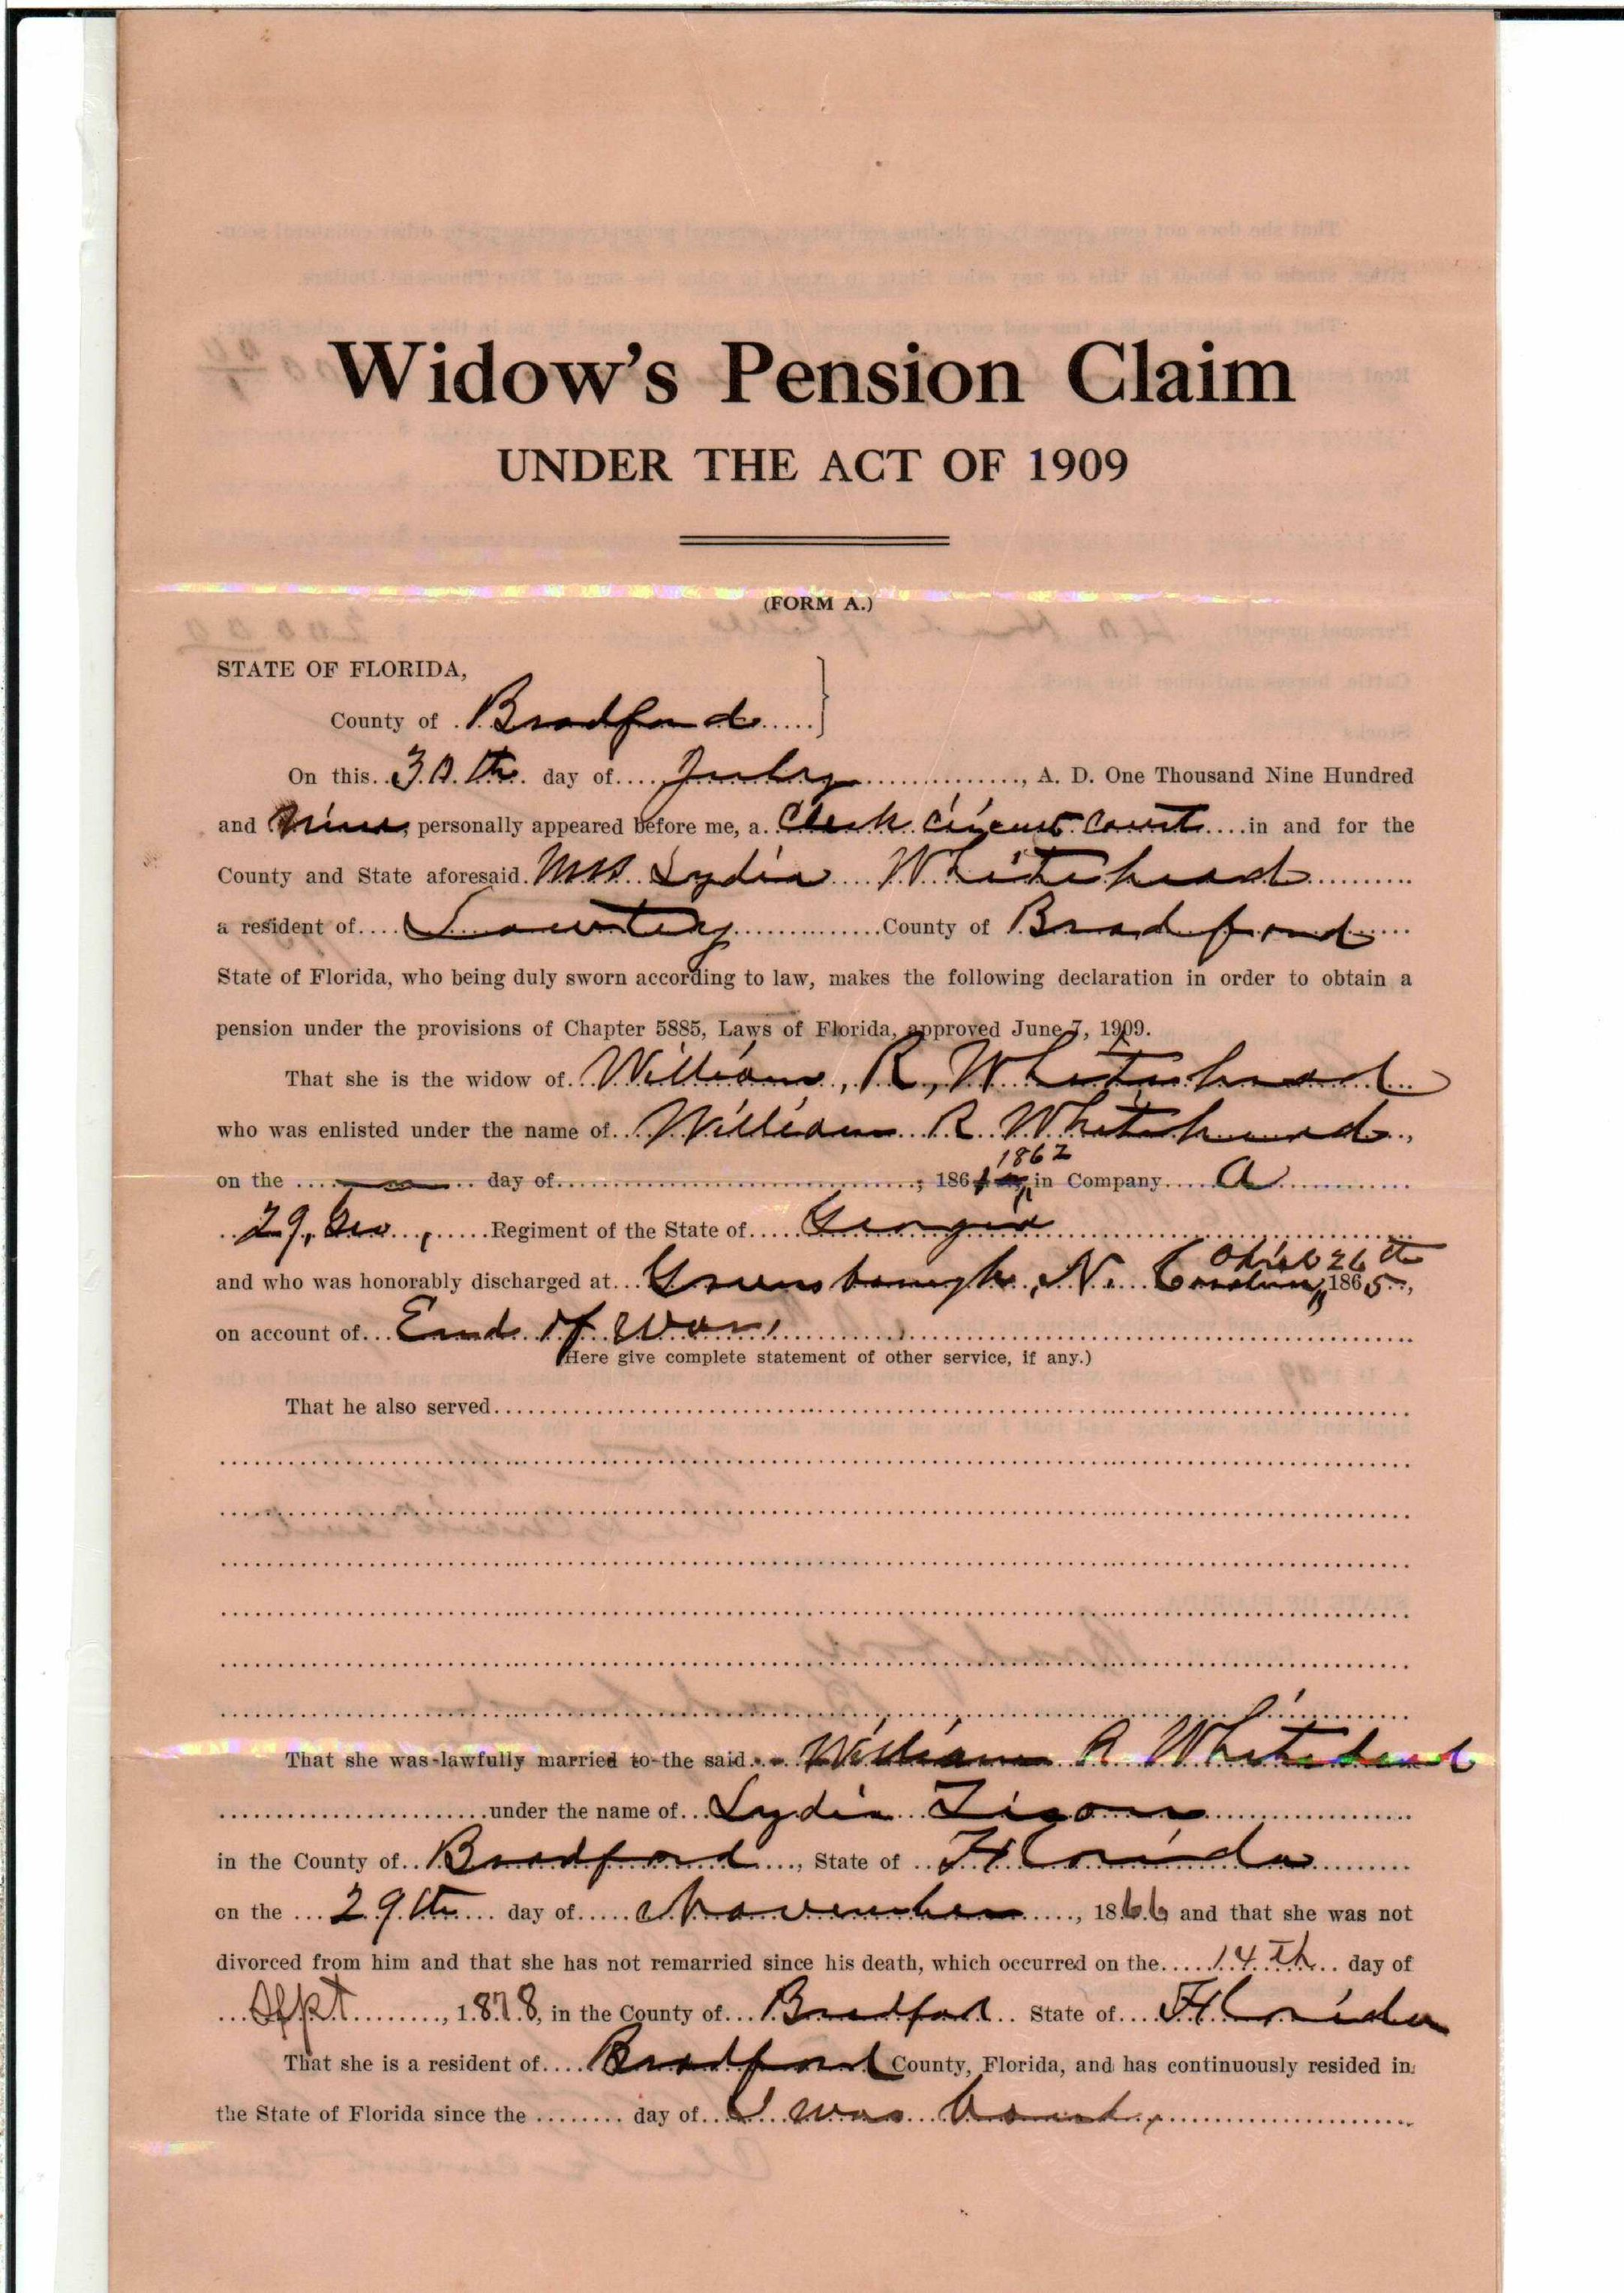 Widow's Pension Claim
UNDER THE ACT OF 1909
(FORM A.)
STATE OF FLORIDA,
County of Bradford
On this 30th day of July, A. D. One Thousand Nine Hundred
and Nine, personally appeared before me, a Clerk Circuit Court in and for the
County and State aforesaid Mrs Lydia Whitehead
a resident of Lawtey County of Bradford
State of Florida, who being duly sworn according to law, makes the following declaration in order to obtain a
pension under the provisions of Chapter 5885, Laws of Florida, approved June 7, 1909.
That she is the widow of William, R, Whitehead
who was enlisted under the name of William R Whitehead,
1862
on the day of , 186 in Company A
29, Geo, Regiment of the State of Georgia
26th
and who was honorably discharged at Greensborough, N. Carolina, 1865,
on account of End of War,
(Here give complete statement of other service, if any.)
That he also served
That she was lawfully married to the said William R Whitehead
under the name of Lydia
in the County of Bradford, State of Florida
on the 29th day of November, 1866 and that she was not
divorced from him and that she has not remarried since his death, which occurred on the 14th day of
Sept, 1878, in the County of Bradford State of Florida
That she is a resident of Bradford County, Florida, and has continuously resided in
the State of Florida since the day of I was born,